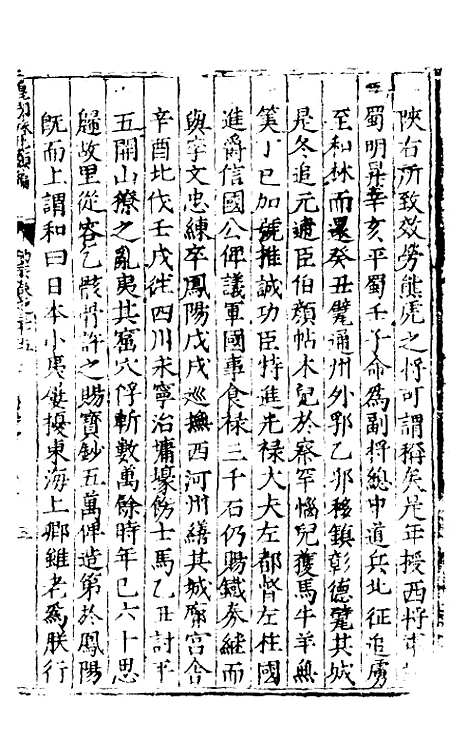 陝右所致效勞熊虎之將可謂稱矣是年授西將軍
蜀明昇辛亥平蜀壬子命爲副將總中道兵北征追虜
至和林而還癸丑甓通州外郛乙卯移鎮彰德甓其城
是冬追元遁臣伯顏帖木兒於察罕惱兒獲馬牛羊無
筭丁巳加號推誠功臣特進光祿大夫左都督左柱國
進爵信國公俾議軍國事食祿三千石仍賜鐵券繼而
與宇文忠練卒鳳陽戊戌巡撫西河州繕其城齋宮舍
辛酉北伐壬戌徙四川未寧治墉壕飭士馬乙丑討平
五開山獠之亂夷其窟穴俘斬數萬餘時年已六十思
歸故里從容乞骸骨許之賜寶鈔五萬俾造第於鳳陽
旣而上謂和曰日本小夷屢擾東海上卿雖老爲朕行